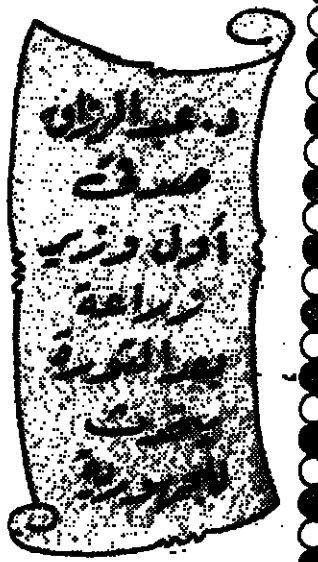 د. عبد الرزاق
صدقى
أول وزير
زراعة
بعد الثورة
يتحدث
للجمهورية